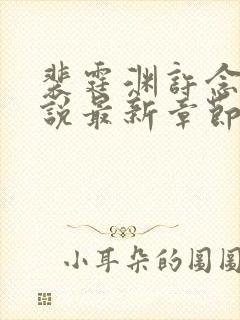 裴霆渊许念
说最新章节
小耳朵的圆圆